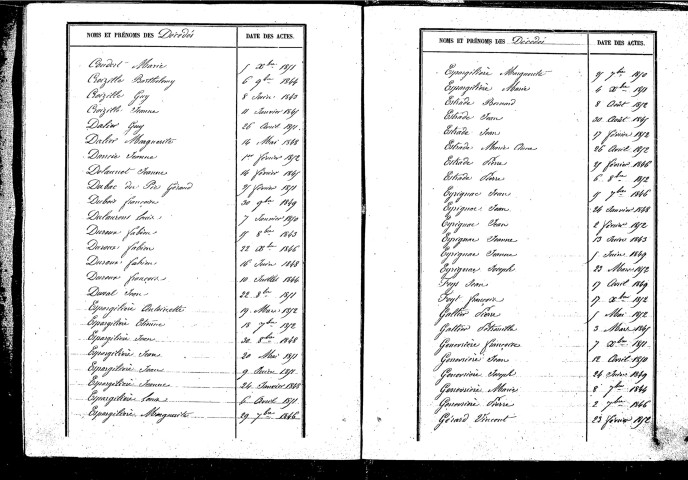 NOMS ET PRÉNOMS DES Décédés
DATE DES ACTES.
Marie 5 Xbre 1851
Croizille Barthélemy 6 9bre 1844
Croizille Guy 8 Juin 1843
Croizille Jeanne 11 Janvier 1845
Dalier Guy 26 Août 1851
Dalier Marguerite 14 Mai 1848
Jeanne 1er février 1852
Jeanne 14 février 1845
Dubac du Pié Géraud 21 février 1851
Dubois françoise 30 9bre 1849
Dulaurent Louis 7 Janvier 1850
Duroux fabien 11 8bre 1843
Duroux fabien 22 Xbre 1846
Duroux fabien 16 Juin 1848
Duroux françois 10 Juillet 1844
Duval Jean 22 8bre 1851
Espargilière Antoinette 19 Mars 1852
Espargilière Etienne 18 7bre 1852
Espargilière Jean 30 8bre 1848
Espargilière Jean 20 Mai 1851
Espargilière Jean 9 Juin 1851
Espargilière Jeanne 24 Janvier 1848
Espargilière Louis 6 Août 1851
Espargilière Marguerite 29 7bre 1846
NOMS ET PRÉNOMS DES Décédés
DATE DES ACTES.
Espargilière Marguerite 7bre 1850
Espargilière Marie 4 Xbre 1851
Estrade Bernard 8 Août 1852
Estrade Jean 30 Août 1851
Estrade Jean 17 février 1852
Estrade Marie Anne 26 Août 1852
Estrade Pierre 21 février 1846
Estrade Pierre 6 8bre 1852
Eyrignac Jean 11 7bre 1846
Eyrignac Jean 24 Janvier 1848
Eyrignac Jean 2 février 1852
Eyrignac Jeanne 13 Juin 1843
Eyrignac Jeanne 5 Juin 1849
Eyrignac Joseph 23 Mars 1852
Feyt Jean 17 Août 1849
Feyt françois 17 Xbre 1852
Galtier Pierre 5 Mai 1852
Galtier 3 Mars 1845
Genevrière françoise 7 Xbre 1851
Genevrière Jean 12 Août 1850
Genevrière Joseph 24 Juin 1849
Genevrière Marie 8 7bre 1844
Genevrière Pierre 2 7bre 1846
Gérard Vincent 23 février 1852